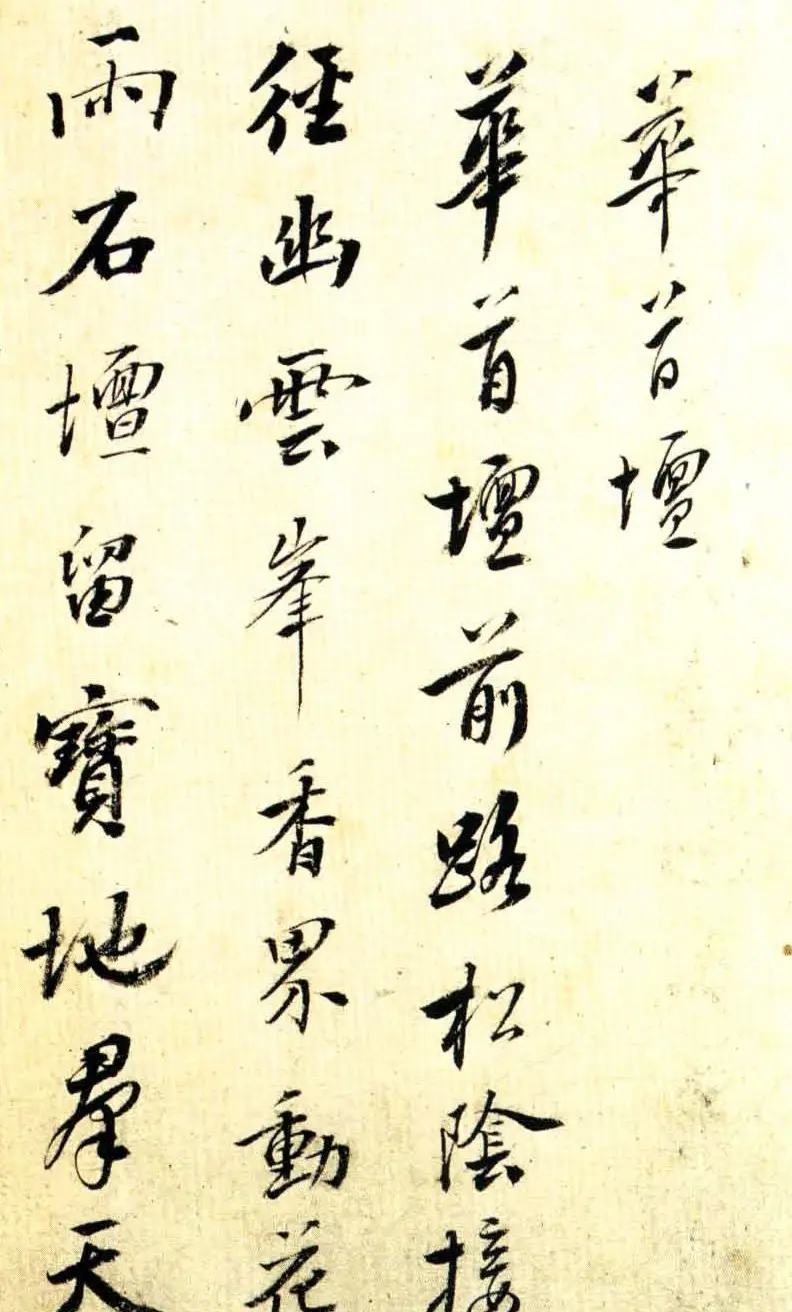 華首壇
華首壇前路松陰接
徑幽雲峯香界動花
雨石壇留寶地羣天